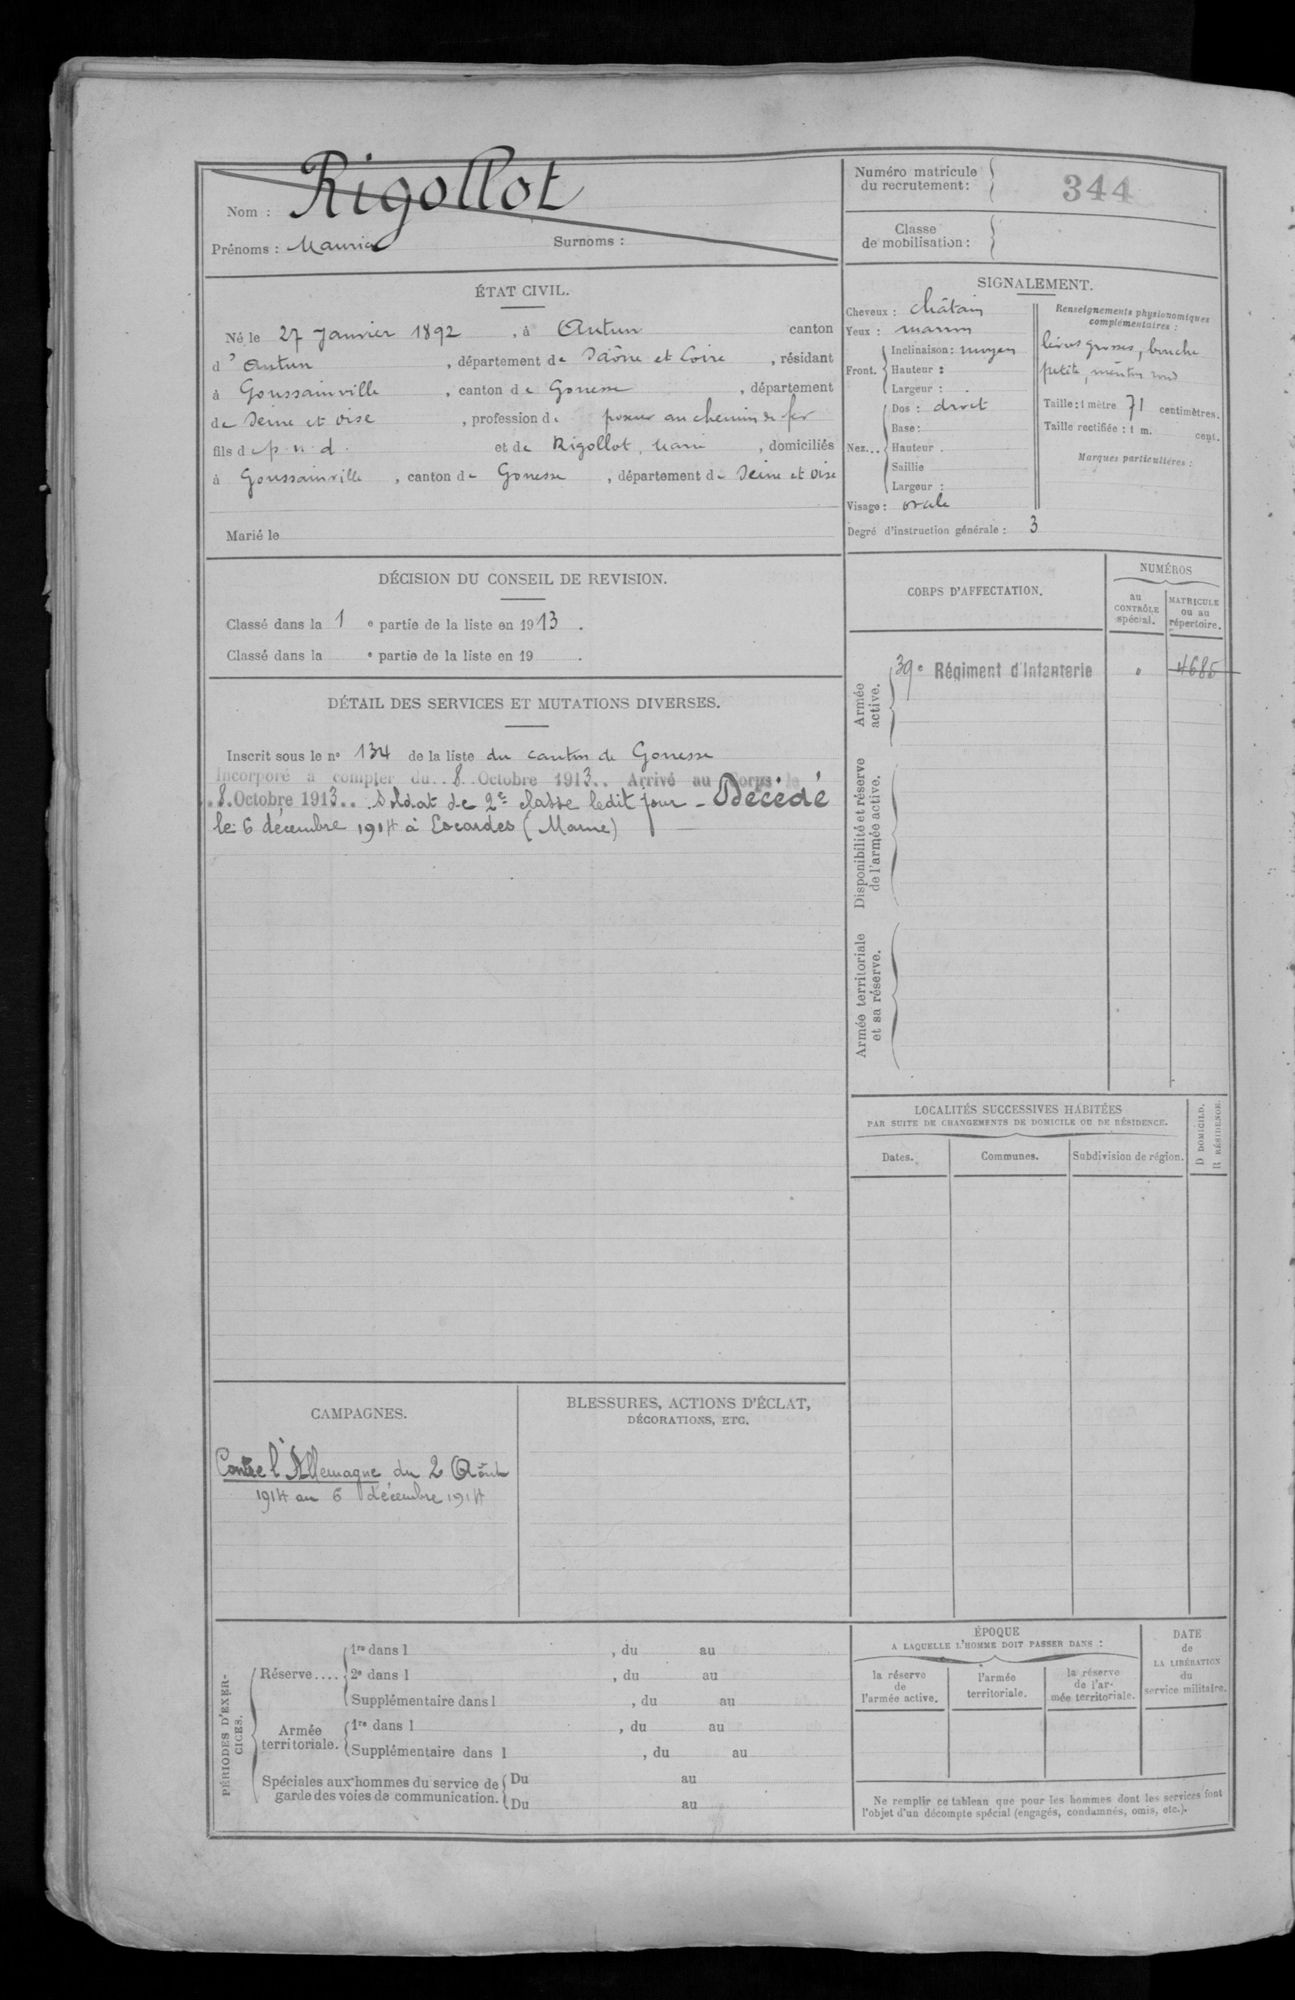 Nom : Rigollot
Prénoms : Maurice Surnoms :
Numéro matricule du recrutement : 344
Classe de mobilisation :
ÉTAT CIVIL.
Né le 27 Janvier 1892, à Autun canton
d'Autun, département de Saône et Loire, résidant
à Goussainville, canton de Gonesse, département
de Seine et Oise, profession de poseur au chemin de fer
fils de p. n. d. et de Rigollot, Marie, domiciliés
à Goussainville, canton de Gonesse, département de Seine et Oise
Marié le
SIGNALEMENT.
Cheveux : châtain
Yeux : marron
Front. Inclinaison : moyen
Hauteur :
Largeur :
Nez... Dos : droit
Base :
Hauteur
Saillie
Largeur :
Visage : ovale
Renseignements physionomiques complémentaires :
lèvres grosses, bouche
petite, menton rond
Taille : 1 mètre 71 centimètres.
Taille rectifiée : 1 m. cent.
Marques particulières :
Degré d'instruction générale : 3
DÉCISION DU CONSEIL DE REVISION.
Classé dans la 1e partie de la liste en 1913.
Classé dans la e partie de la liste en 19 .
DÉTAIL DES SERVICES ET MUTATIONS DIVERSES.
Inscrit sous le no 134 de la liste du canton de Gonesse
Incorporé à compter du 8 Octobre 1913.. Arrivé au Corps le
8 Octobre 1913.. Soldat de 2e classe ledit jour - Décédé
le 6 décembre 1914 à Escardes (Marne)
CORPS D'AFFECTATION.
NUMÉROS
au CONTRÔLE spécial.
MATRICULE ou au répertoire.
Armée active.
39e Régiment d'Infanterie " 4685
Disponibilité et réserve de l'armée active.
Armée territoriale et sa réserve.
LOCALITÉS SUCCESSIVES HABITÉES
PAR SUITE DE CHANGEMENTS DE DOMICILE OU DE RÉSIDENCE.
Dates. Communes. Subdivision de région. D DOMICILE. R RÉSIDENCE.
CAMPAGNES.
Contre l'Allemagne du 2 Août
1914 au 6 décembre 1914
BLESSURES, ACTIONS D'ÉCLAT,
DÉCORATIONS, ETC.
PÉRIODES D'EXERCICES.
Réserve.... 1re dans l , du au
2e dans l , du au
Supplémentaire dans l , du au
Armée territoriale. 1re dans l , du au
Supplémentaire dans l , du au
Spéciales aux hommes du service de garde des voies de communication. Du au
Du au
ÉPOQUE
A LAQUELLE L'HOMME DOIT PASSER DANS :
la réserve de l'armée active.
l'armée territoriale.
la réserve de l'armée territoriale.
DATE de LA LIBÉRATION du service militaire.
Ne remplir ce tableau que pour les hommes dont les services font
l'objet d'un décompte spécial (engagés, condamnés, omis, etc.).